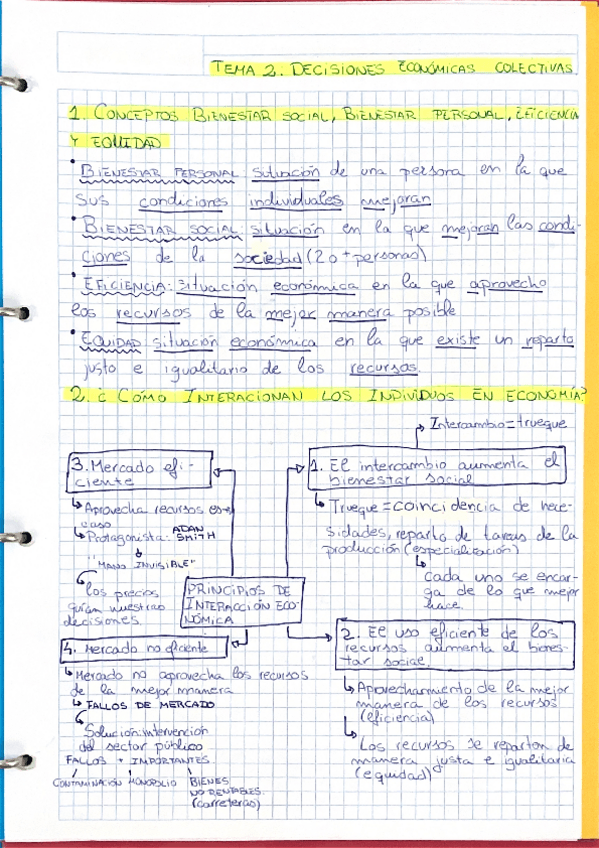 TEMA 2. DECISIONES ECONÓMICAS COLECTIVAS.
1. CONCEPTOS BIENESTAR SOCIAL, BIENESTAR PERSONAL, EFICIENCIA
Y EQUIDAD
• BIENESTAR PERSONAL: situación de una persona en la que
sus condiciones individuales mejoran
• BIENESTAR SOCIAL: situación en la que mejoran las condi-
ciones de la sociedad (2 o + personas)
• EFICIENCIA: situación económica en la que aprovecho
los recursos de la mejor manera posible
• EQUIDAD: situación económica en la que existe un reparto
justo e igualitario de los recursos.
2. ¿CÓMO INTERACIONAN LOS INDIVIDUOS EN ECONOMÍA?
Intercambio = trueque
1. El intercambio aumenta el
bienestar social
Trueque = coincidencia de nece-
sidades, reparto de tareas de la
producción (especialización)
Cada uno se encar-
ga de lo que mejor
hace.
3. Mercado efi-
ciente
Aprovecha recursos
caso
Protagonista: ADAN
SMITH
"MANO INVISIBLE"
los precios
guían nuestras
decisiones.
PRINCIPIOS DE
INTERACCIÓN ECO-
NÓMICA
2. El uso eficiente de los
recursos aumenta el bienes-
tar social.
Aprovecharmiento de la mejor
manera de los recursos
(eficiencia)
Los recursos se reparton de
manera justa e igualitaria
(equidad)
4. Mercado no eficiente
Mercado no aprovecha los recursos
de la mejor manera
FALLOS DE MERCADO
Solución: intervención
del sector público
FALLOS + IMPORTANTES
CONTAMINACIÓN MONOPOLIO BIENES
NO RENTABLES.
(carreteras)